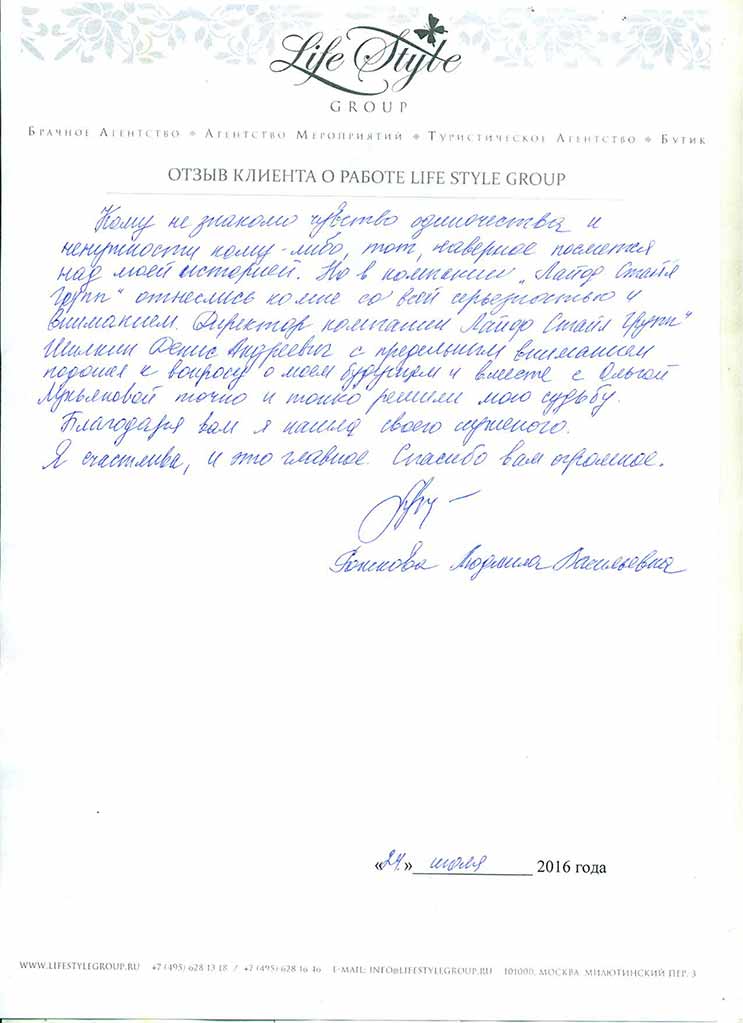 Life Style
GROUP
Брачное Агентство • Агентство Мероприятий • Туристическое Агентство • Бутик
ОТЗЫВ КЛИЕНТА О РАБОТЕ LIFE STYLE GROUP
Кому не знакомо чувство одиночества и
ненужности кому-либо, тот, наверное посмеется
над моей историей. Но в компании „Лайф Стайл
Групп“ отнеслись ко мне со всей серьезностью и
вниманием. Директор компании „Лайф Стайл Групп“
Шилкин Денис Андреевич с предельным вниманием
подошел к вопросу о моем будущем и вместе с Ольгой
Лукьяновой точно и тонко решили мою судьбу.
Благодаря вам я нашла своего суженого.
Я счастлива, и это главное. Спасибо вам огромное.
Людмила Васильевна
«24.» июля 2016 года
WWW.LIFESTYLEGROUP.RU +7 (495) 628 13 18 / +7 (495) 628 16 46 E-MAIL: INFO@LIFESTYLEGROUP.RU 101000, МОСКВА, МИЛЮТИНСКИЙ ПЕР. 3